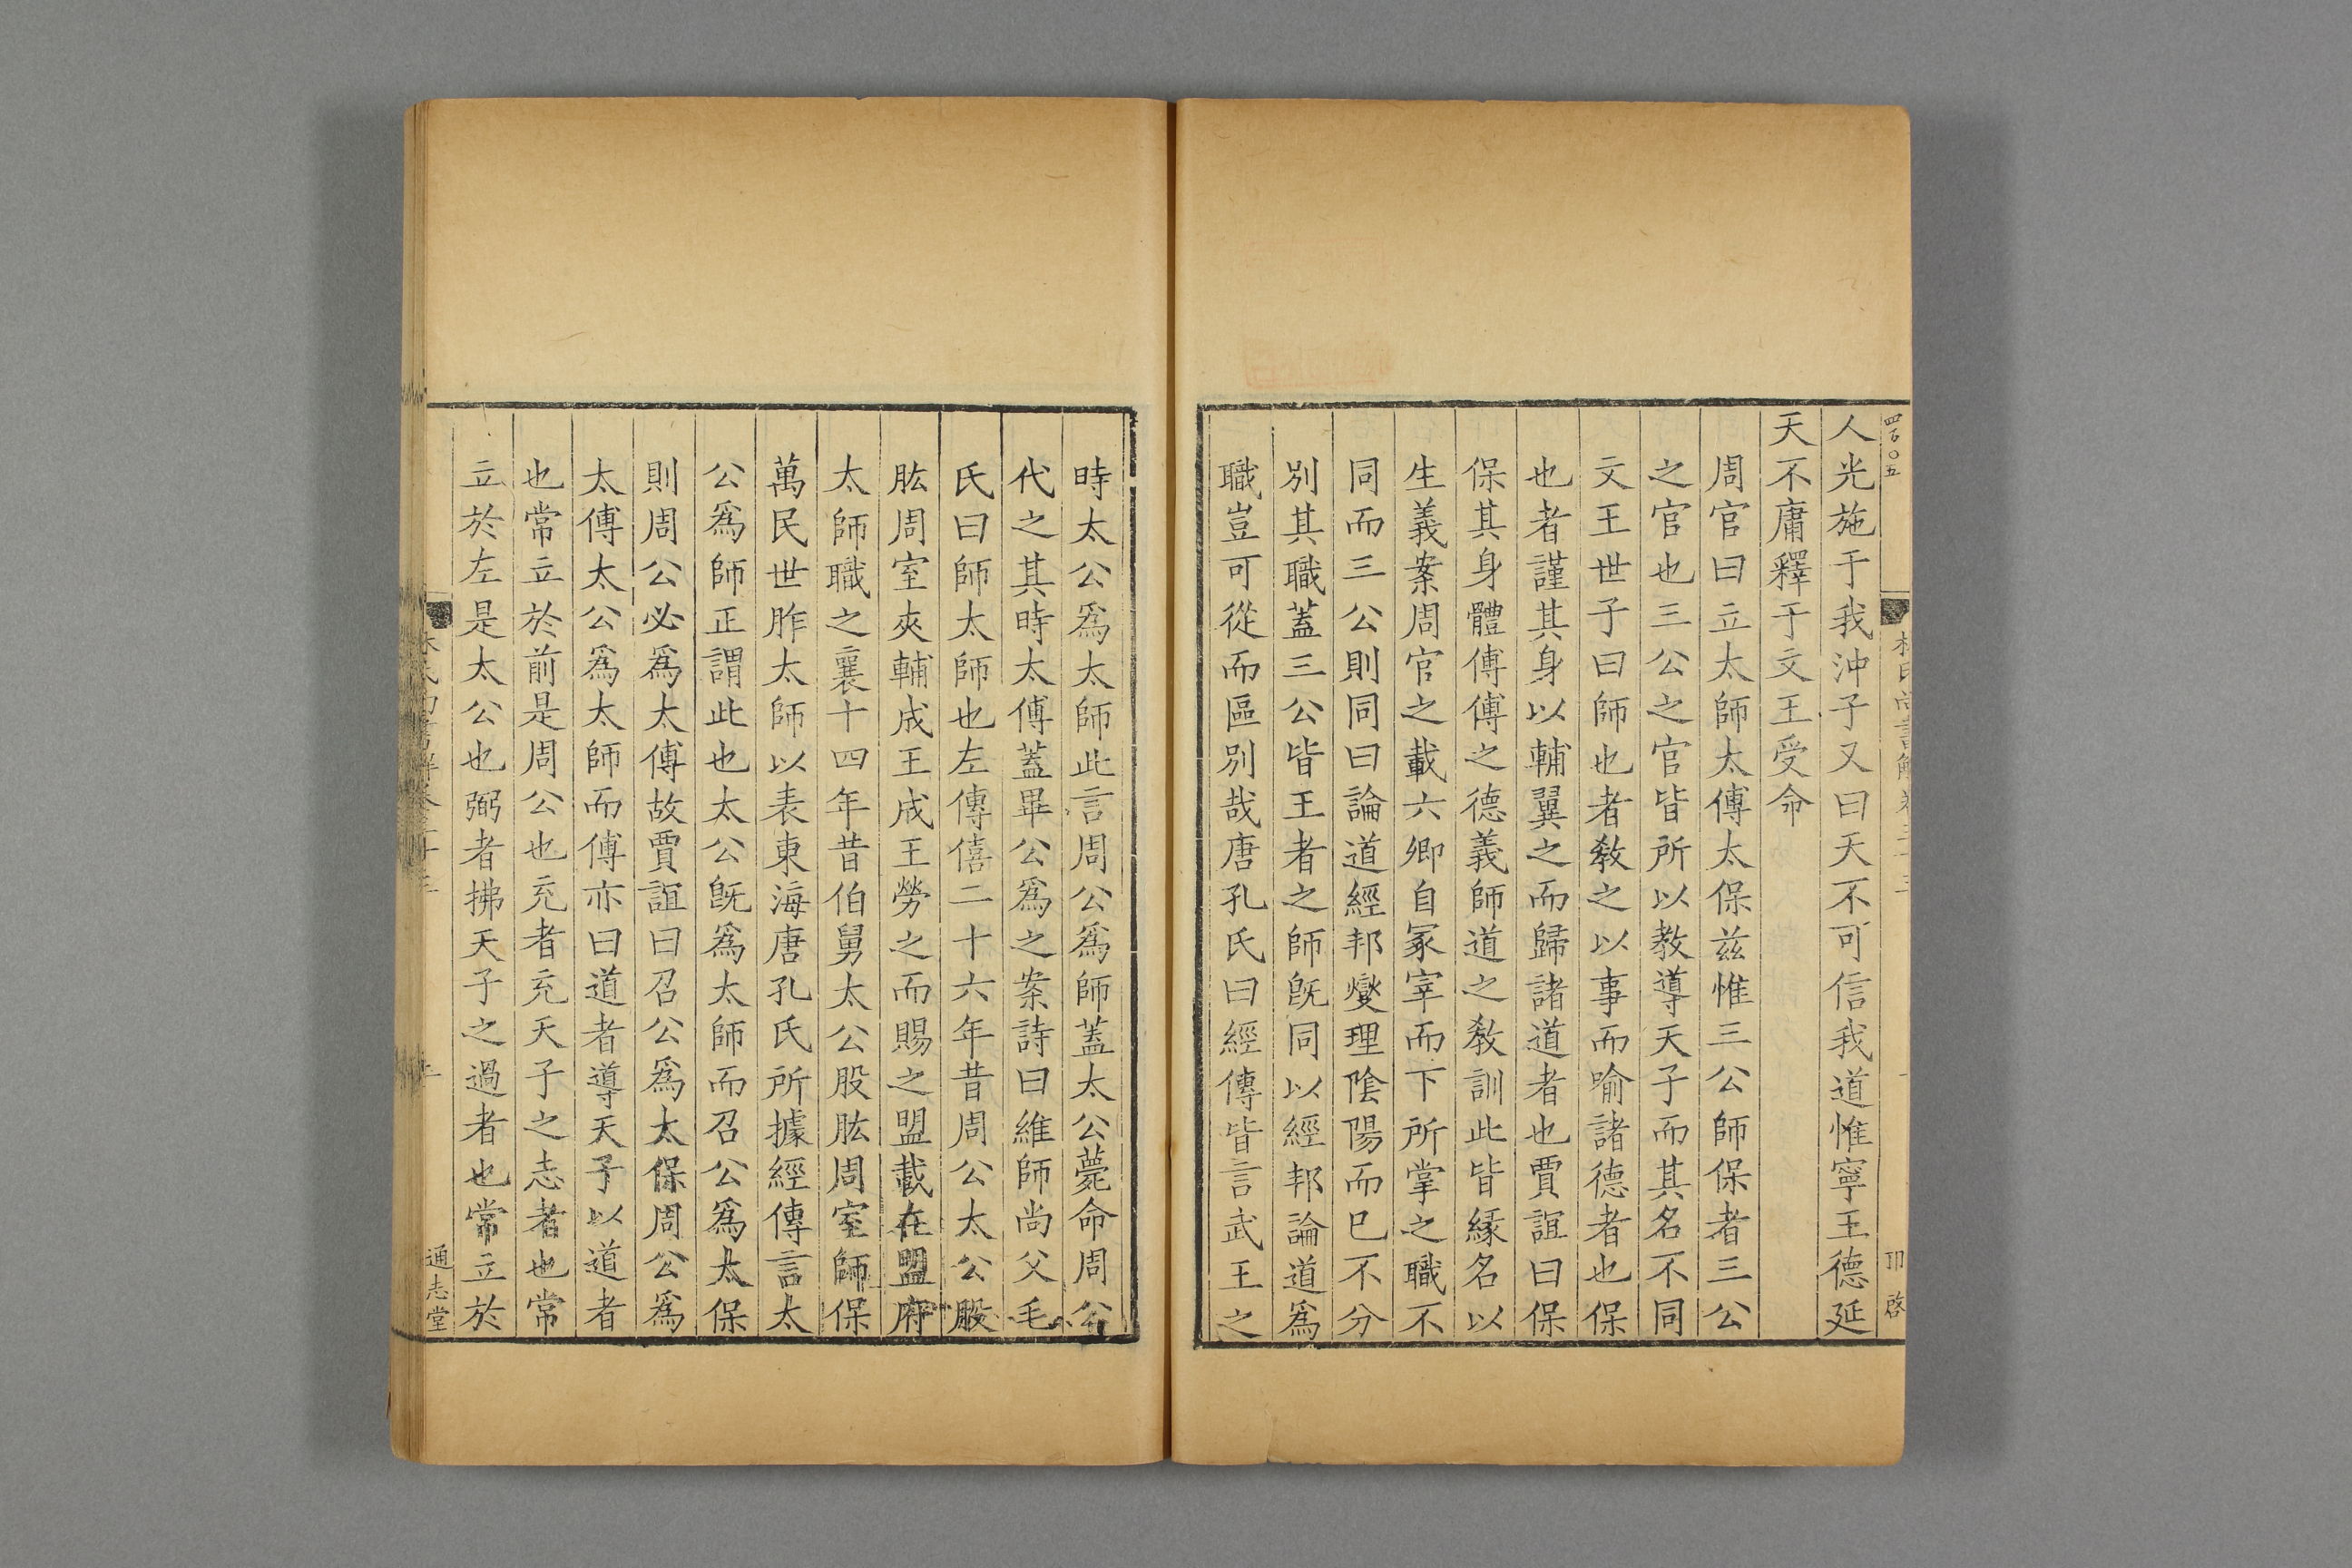 四百〇五
林氏尚書解卷三十三
卬 啓
人光施于我沖子又曰天不可信我道惟寧王德延
天不庸釋于文王受命
周官曰立太師太傅太保茲惟三公師保者三公
之官也三公之官皆所以教導天子而其名不同
文王世子曰師也者敎之以事而喻諸德者也保
也者謹其身以輔翼之而歸諸道者也賈誼曰保
保其身體傅傅之德義師道之敎訓此皆緣名以
生義案周官之載六卿自冢宰而下所掌之職不
同而三公則同曰論道經邦燮理陰陽而已不分
別其職蓋三公皆王者之師旣同以經邦論道爲
職豈可從而區別哉唐孔氏曰經傳皆言武王之
時太公爲太師此言周公爲師蓋太公薨命周公
代之其時太傅蓋畢公爲之案詩曰維師尚父毛
氏曰師太師也左傳僖二十六年昔周公太公股
肱周室夾輔成王成王勞之而賜之盟載在盟府
太師職之襄十四年昔伯舅太公股肱周室師保
萬民世胙太師以表東海唐孔氏所據經傳言太
公爲師正謂此也太公旣爲太師而召公爲太保
則周公必爲太傅故賈誼曰召公爲太保周公爲
太傅太公爲太師而傅亦曰道者導天子以道者
也常立於前是周公也充者充天子之志者也常
立於左是太公也弼者拂天子之過者也常立於
通志堂